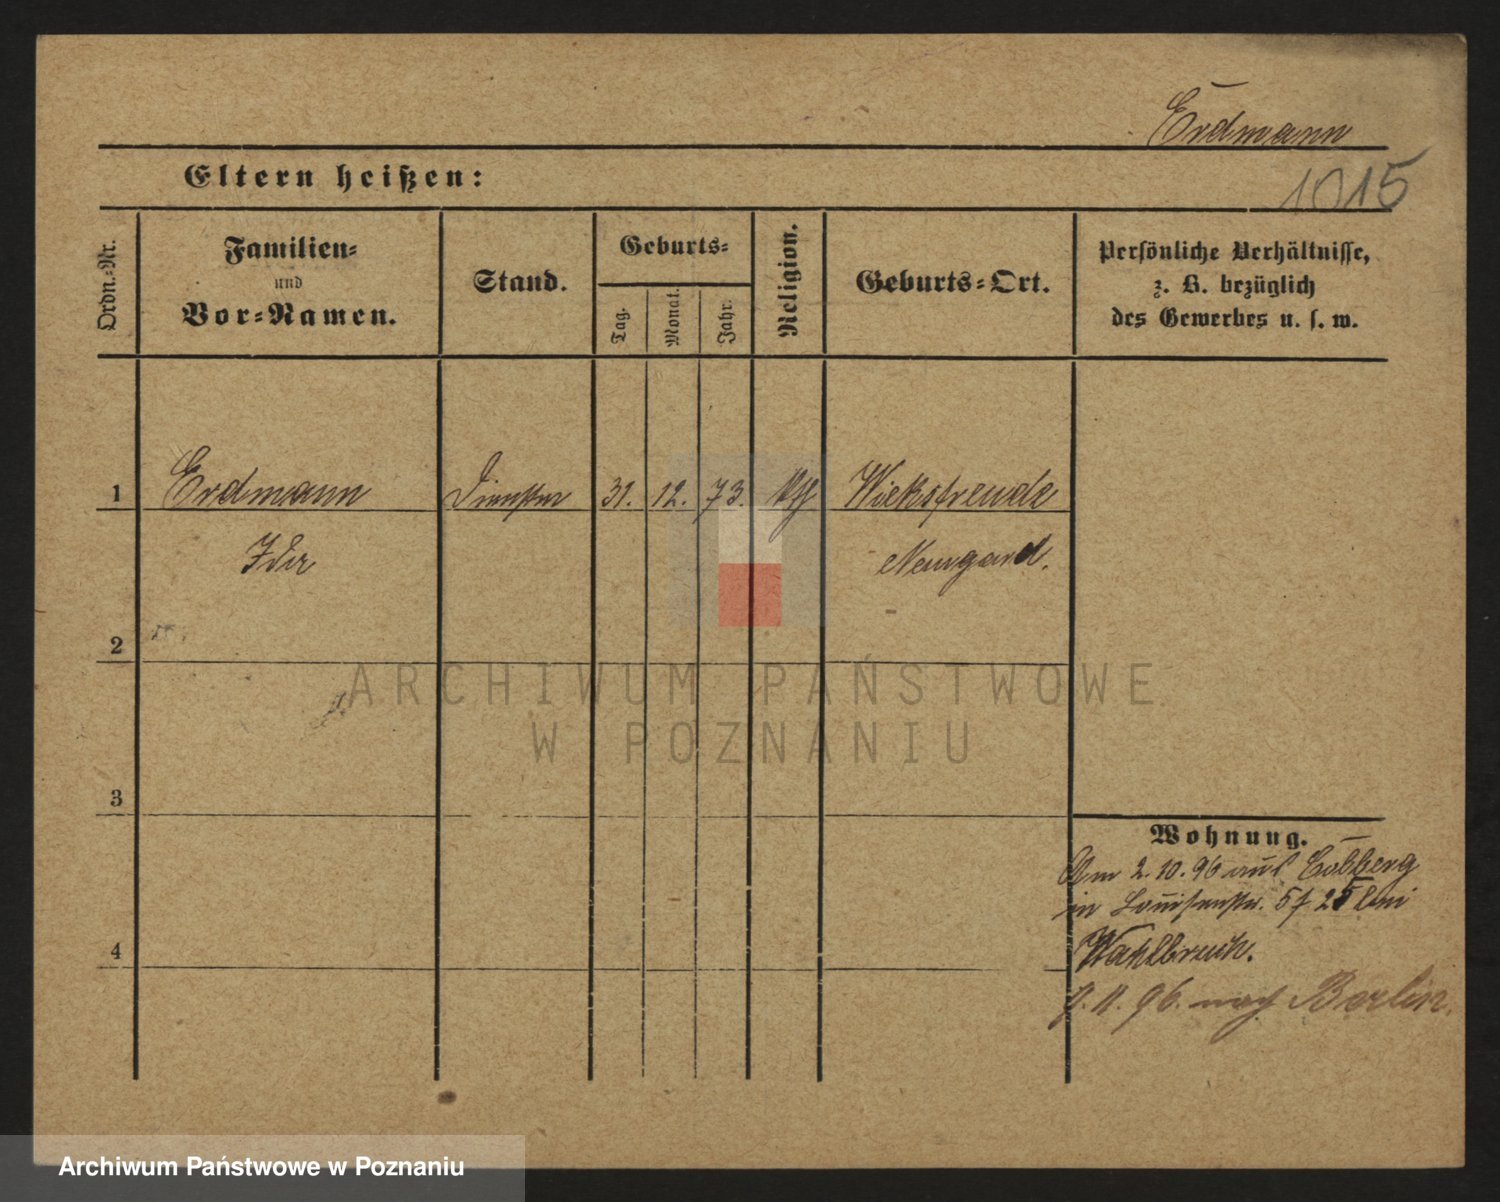 Erdmann
Eltern heißen:
1015
Ordn.-Nr.
Familien-
und
Vor-Namen.
Stand.
Geburts-
Tag.
Monat.
Jahr.
Religion.
Geburts-Ort.
Persönliche Verhältnisse,
z. B. bezüglich
des Gewerbes u. s. w.
1 Erdmann 31. 12. 73. Wieksfreude
Ida Naugard.
2
ARCHIWUM PAŃSTWOWE
W POZNANIU
3
Wohnung.
Am 2.10.96 aus Colberg
in Louisenstr. 5 f. 25 bei
4
Wahlbruch.
11. 96. nach Berlin.
Archiwum Państwowe w Poznaniu